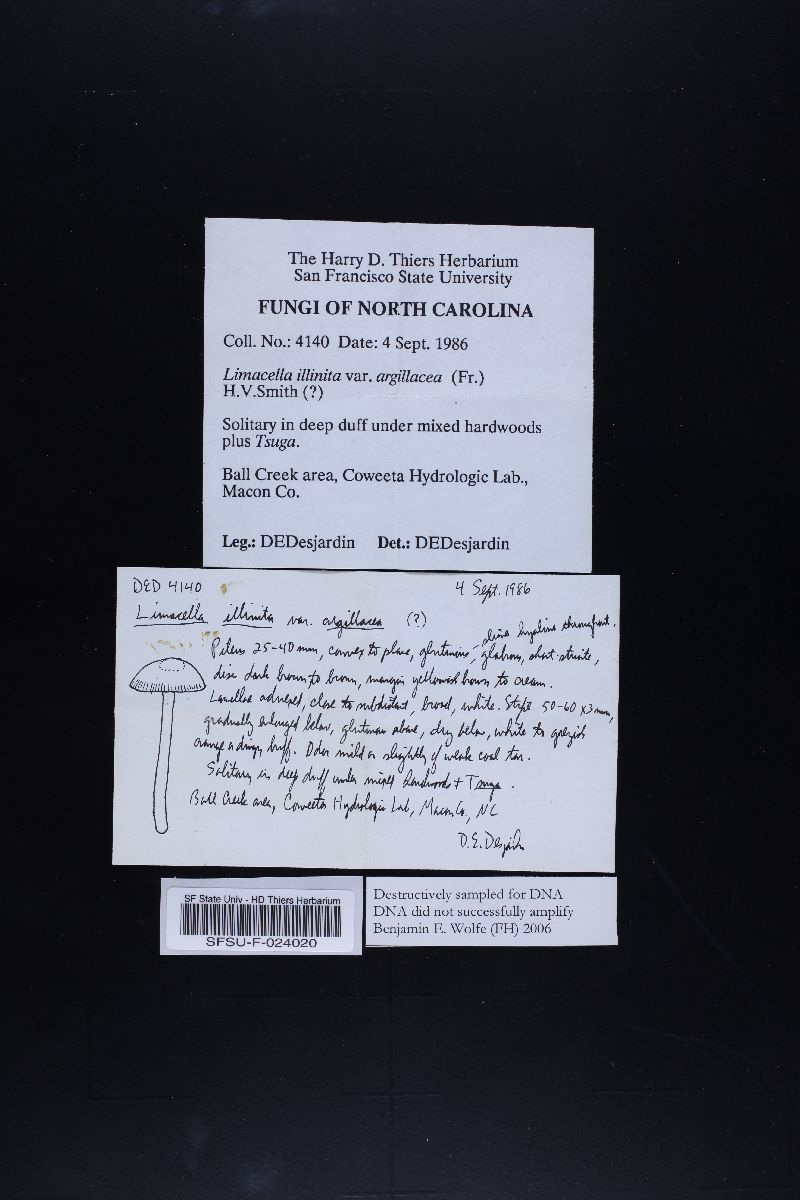 The Harry D. Thiers Herbarium
San Francisco State University
FUNGI OF NORTH CAROLINA
Coll. No.: 4140 Date: 4 Sept. 1986
Limacella illinita var. argillacea (Fr.)
H.V.Smith (?)
Solitary in deep duff under mixed hardwoods
plus Tsuga.
Ball Creek area, Coweeta Hydrologic Lab.,
Macon Co.
Leg.: DEDesjardin Det.: DEDesjardin
DED 4140 4 Sept. 1986
Limacella illinita var. argillacea (?)
slime hyaline throughout.
Pileus 25-40 mm, convex to plane, glutinous, glabrous, short-striate,
disc dark brown to brown, margin yellowish brown to cream.
Lamellae adnexed, close to subdistant, broad, white. Stipe 50-60 x 3 mm,
gradually enlarged below, glutinous above, dry below, white to greyish
orange or dingy buff. Odor mild or slightly of weak coal tar.
Solitary in deep duff under mixed hardwoods + Tsuga.
Ball Creek area, Coweeta Hydrologic Lab, Macon Co., NC
D.E. Desjardin
SF State Univ - HD Thiers Herbarium
SFSU-F-024020
Destructively sampled for DNA
DNA did not successfully amplify
Benjamin E. Wolfe (FH) 2006